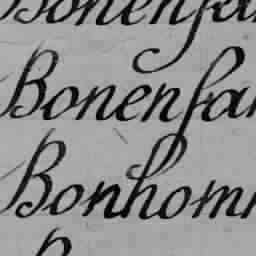 Bonenfa
Bonenfan
Bonhomm